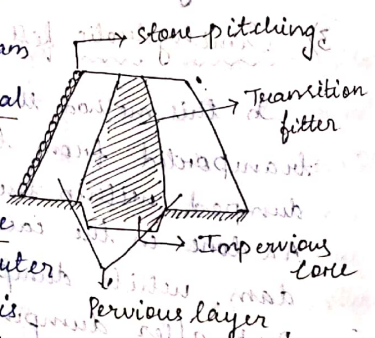 am
stone pitching
al
Transition
fitter
Impervious
Core
e
uter
is.
Pervious layer